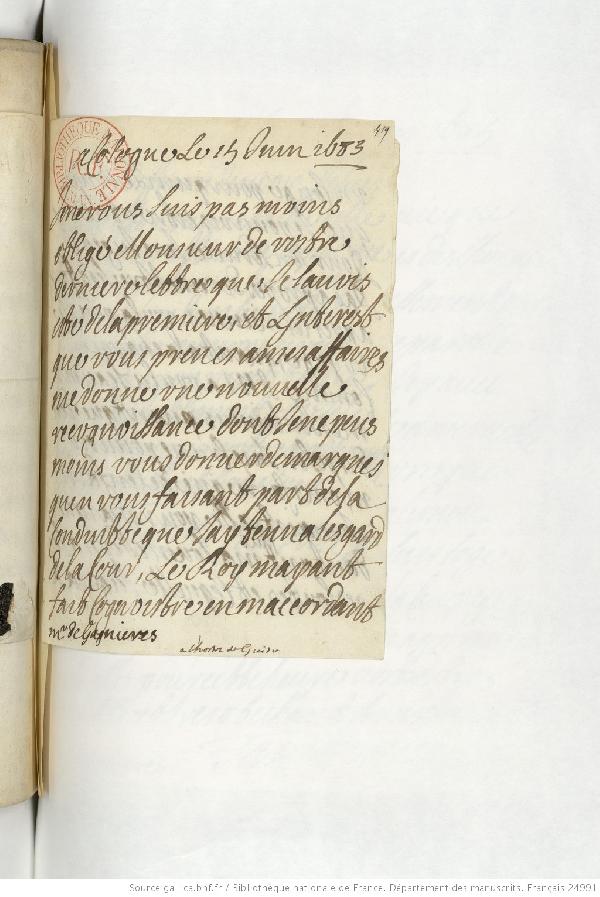 419
a Cologne Le 15 Juin 1683
Jenevous suis pas moins
obligé Monsieur de vostre
derniere lettre que Je lauois
esté de la premiere, et Linterest
que vous prenes ames affaires
me donne vne nouuelle
reconnoissance dont Jene peus
moins vous donner de marques
quen vous faisant part de la
Conduitte que Jay tenu a lesgard
de la Cour, Le Roy mayant
fait Cognoistre en maccordant
Mr. de Gaignieres
a lhostel de Guise
Source gallica.bnf.fr / Bibliothèque nationale de France. Département des manuscrits. Français 24991